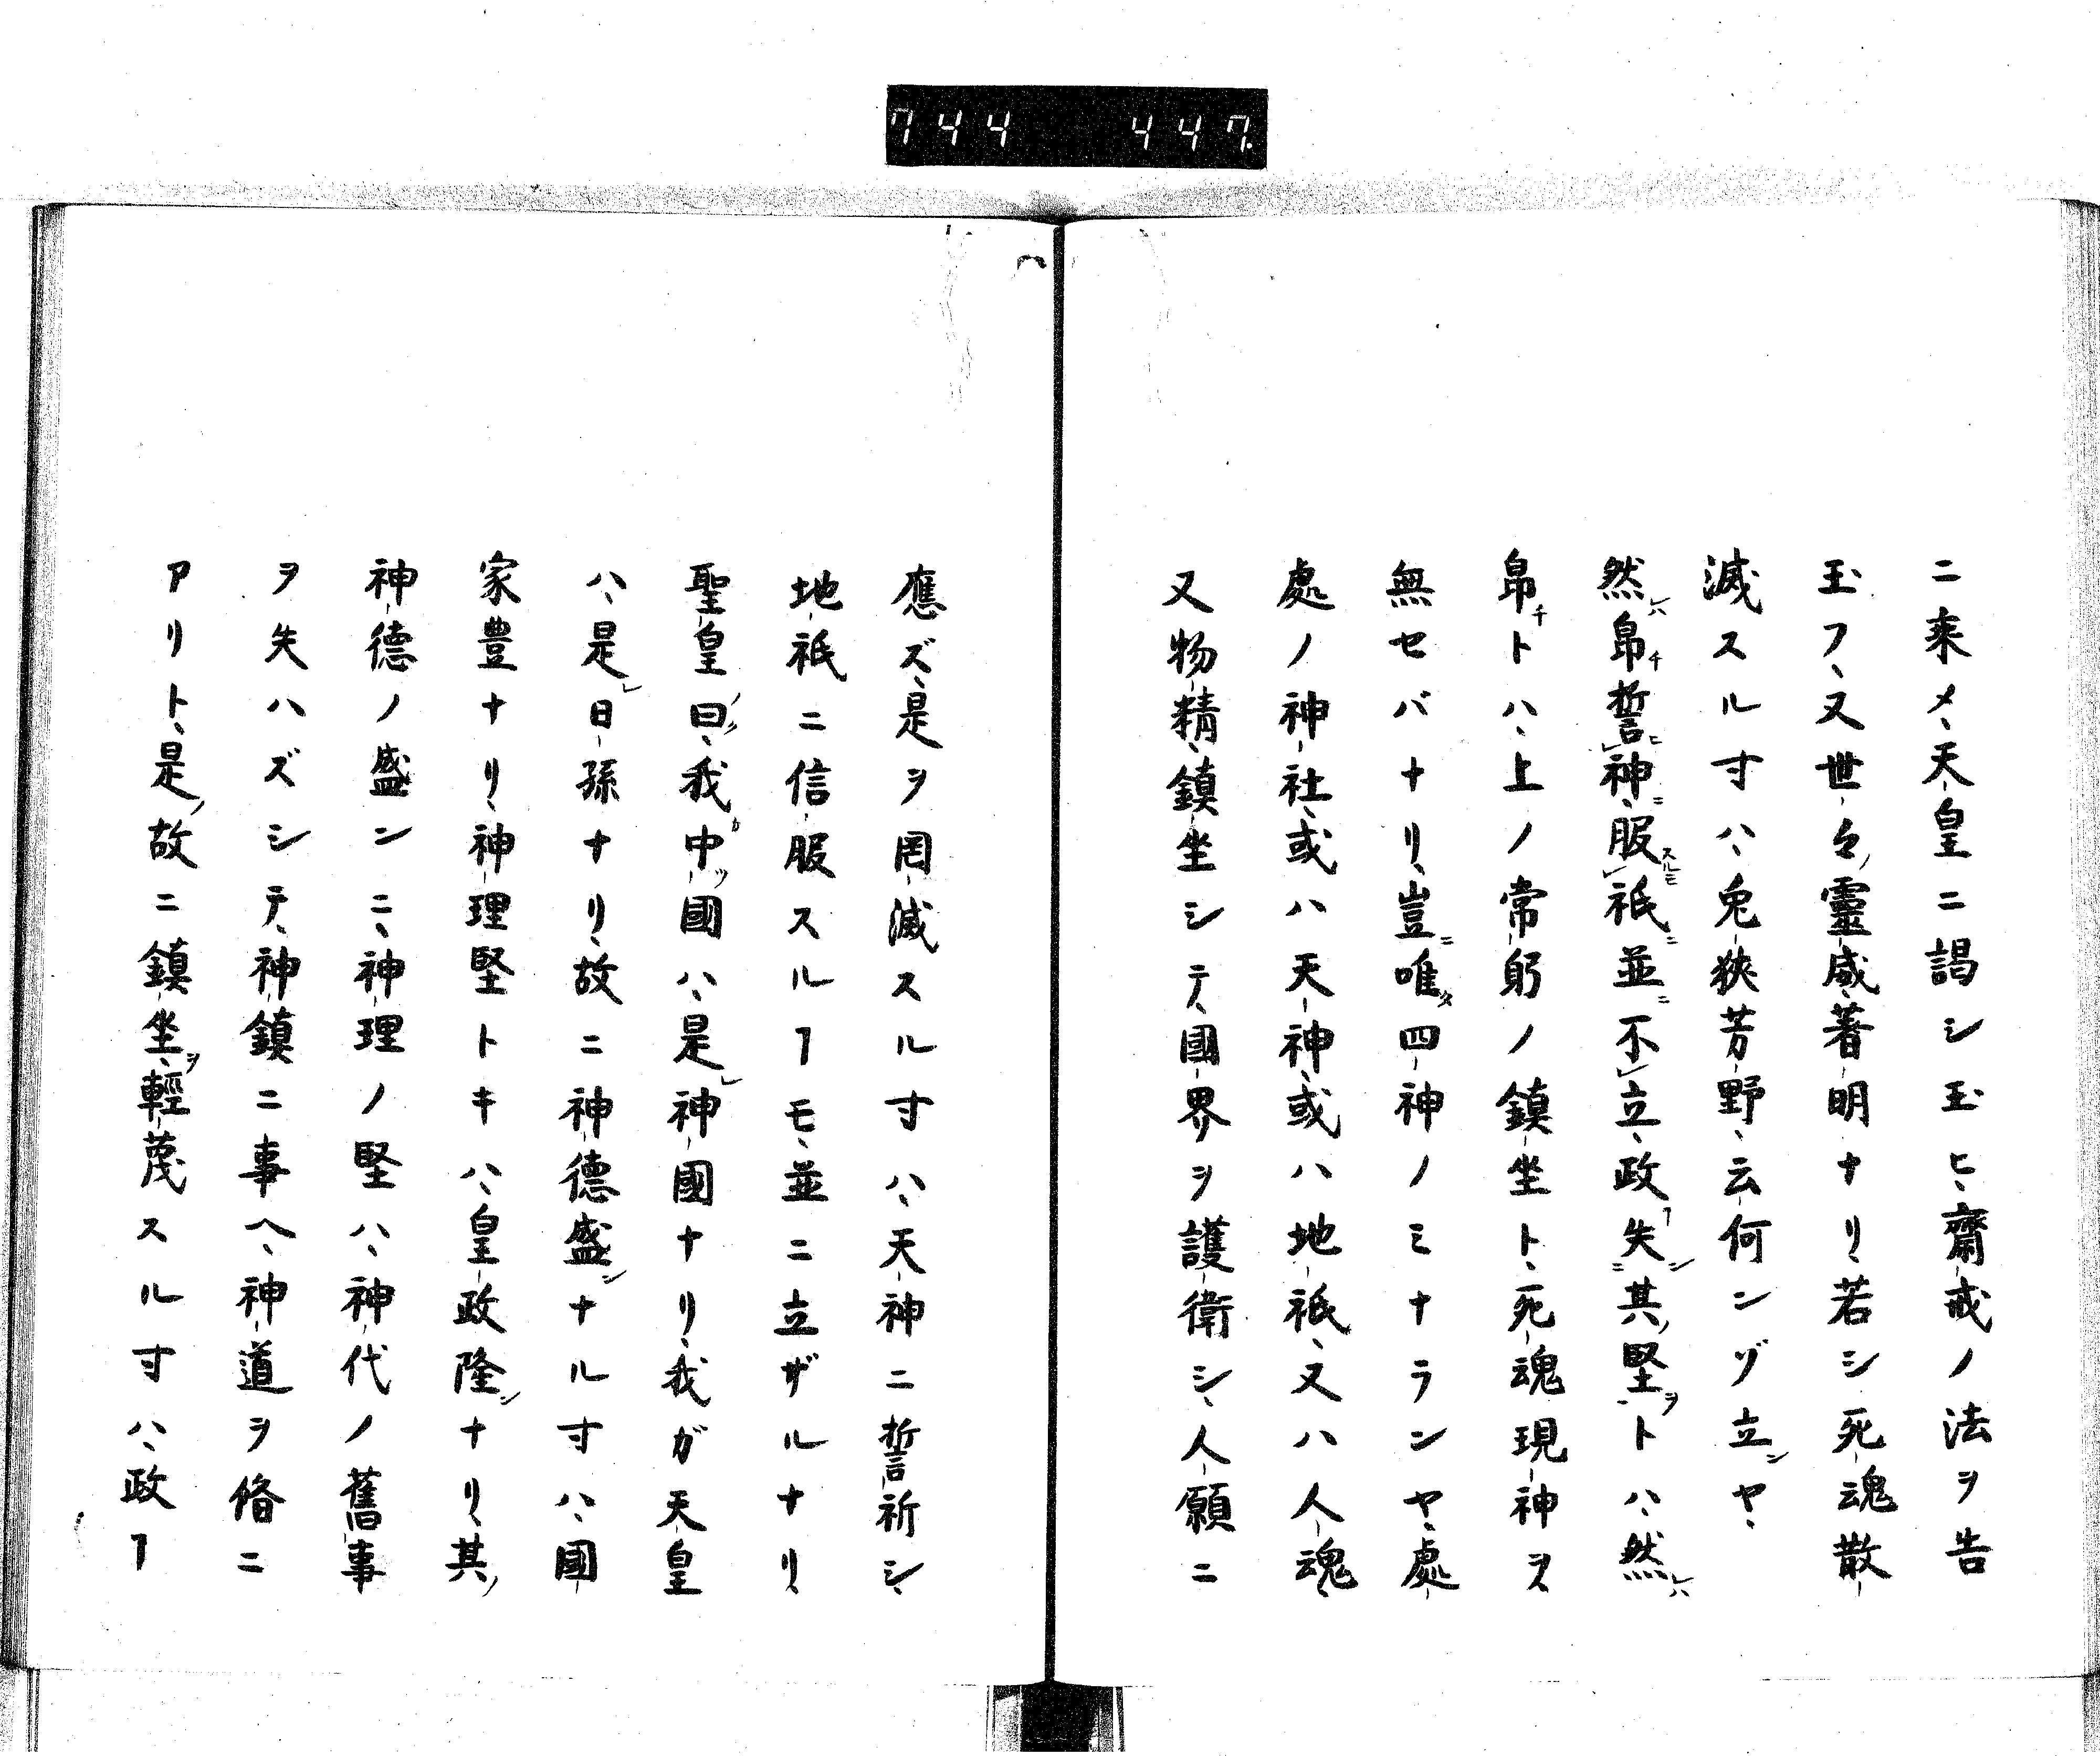 744 447.
ニ来メ、天皇ニ謁シ玉ヒ、齋戒ノ法ヲ告
玉フ、又世々靈威著明ナリ、若シ死魂散
滅スル寸ハ、兎狹芳野、云何ンゾ立ンヤ、
然帛誓神、服祇並不立、政失其堅トハ、然
帛トハ、上ノ常躬ノ鎮坐ト、死魂現神ヲ
無セバナリ、豈唯四神ノミナランヤ、處
處ノ神社、或ハ天神、或ハ地祇、又ハ人魂、
又物精、鎮坐シテ、國界ヲ護衛シ、人願ニ
應ズ、是ヲ罔滅スル寸ハ、天神ニ誓祈シ、
地祇ニ信服スルヿモ、並ニ立ザルナリ、
聖皇曰、我中國ハ、是神國ナリ、我ガ天皇
ハ、是日孫ナリ、故ニ神德盛ナル寸ハ、國
家豊ナリ、神理堅トキハ、皇政隆ナリ、其
神德ノ盛ンニ、神理ノ堅ハ、神代ノ舊事
ヲ失ハズシテ、神鎮ニ事ヘ、神道ヲ脩ニ
アリト、是故ニ鎮坐輕蔑スル寸ハ、政ヿ